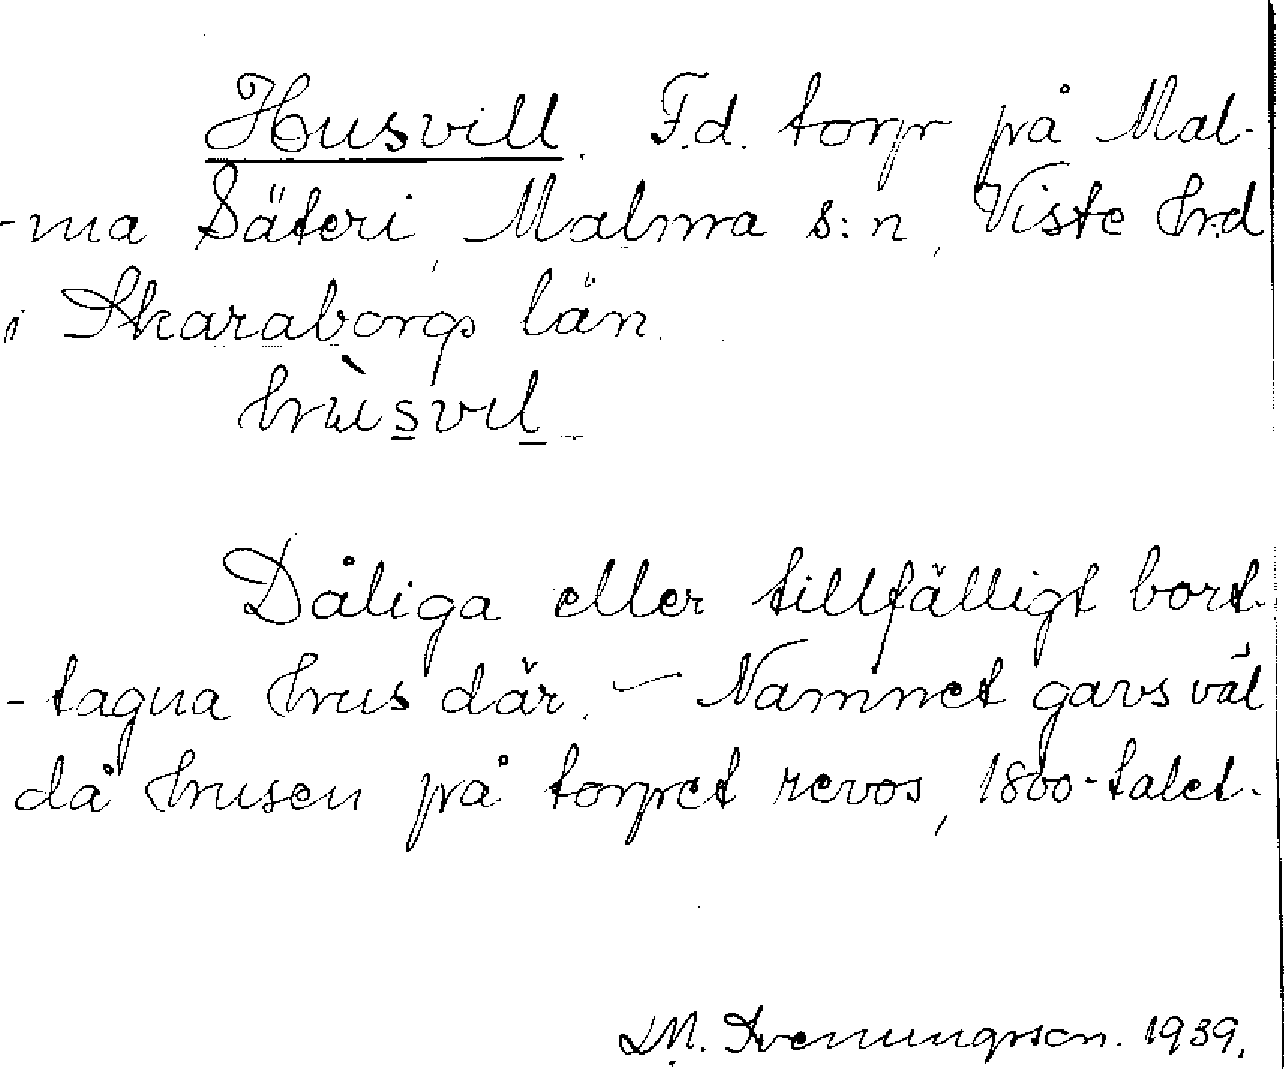 Husvill. F.d. torp på Mal-
-ma Säteri, Malma s:n, Viste hrd
i Skaraborgs län.
hùsvil
Dåliga eller tillfälligt bort-
-tagna hus där. – Namnet gavs väl
då husen på torpet revos, 1800-talet.
L.M. Svenungsson. 1939.